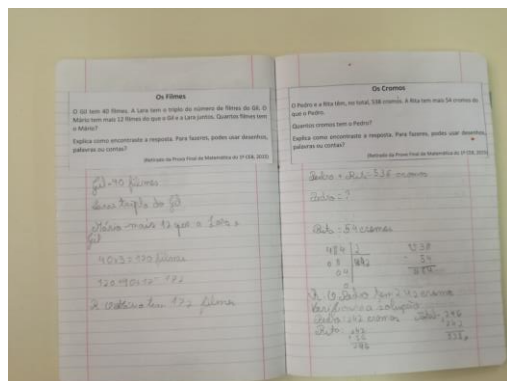 Os Filmes
O Gil tem 40 filmes. A Lara tem o triplo do número de filmes do Gil. O
Mário tem mais 12 filmes do que o Gil e a Lara juntos. Quantos filmes tem
o Mário?
Explica como encontraste a resposta. Para fazeres, podes usar desenhos,
palavras ou contas?
(Retirado da Prova Final de Matemática do 1º CEB, 2015)
Gil - 40 filmes
Lara triplo do Gil
Mário - mais 12 que a Lara e
Gil
40x3=120 filmes
120+40+12= 172
R: O Mário tem 172 filmes
Os Cromos
O Pedro e a Rita têm, no total, 538 cromos. A Rita tem mais 54 cromos do
que o Pedro.
Quantos cromos tem o Pedro?
Explica como encontraste a resposta. Para fazeres, podes usar desenhos,
palavras ou contas?
(Retirado da Prova Final de Matemática do 1º CEB, 2015)
Pedro + Rita = 538 cromos
Pedro = ?
Rita: 54 cromos
484 | 2
538
08 242
- 54
04
484
0
R: O Pedro tem 242 cromos
Verificar a solução
Pedro: 242 cromos
Total: 296
Rita: 242
+ 242
+ 54
538
296